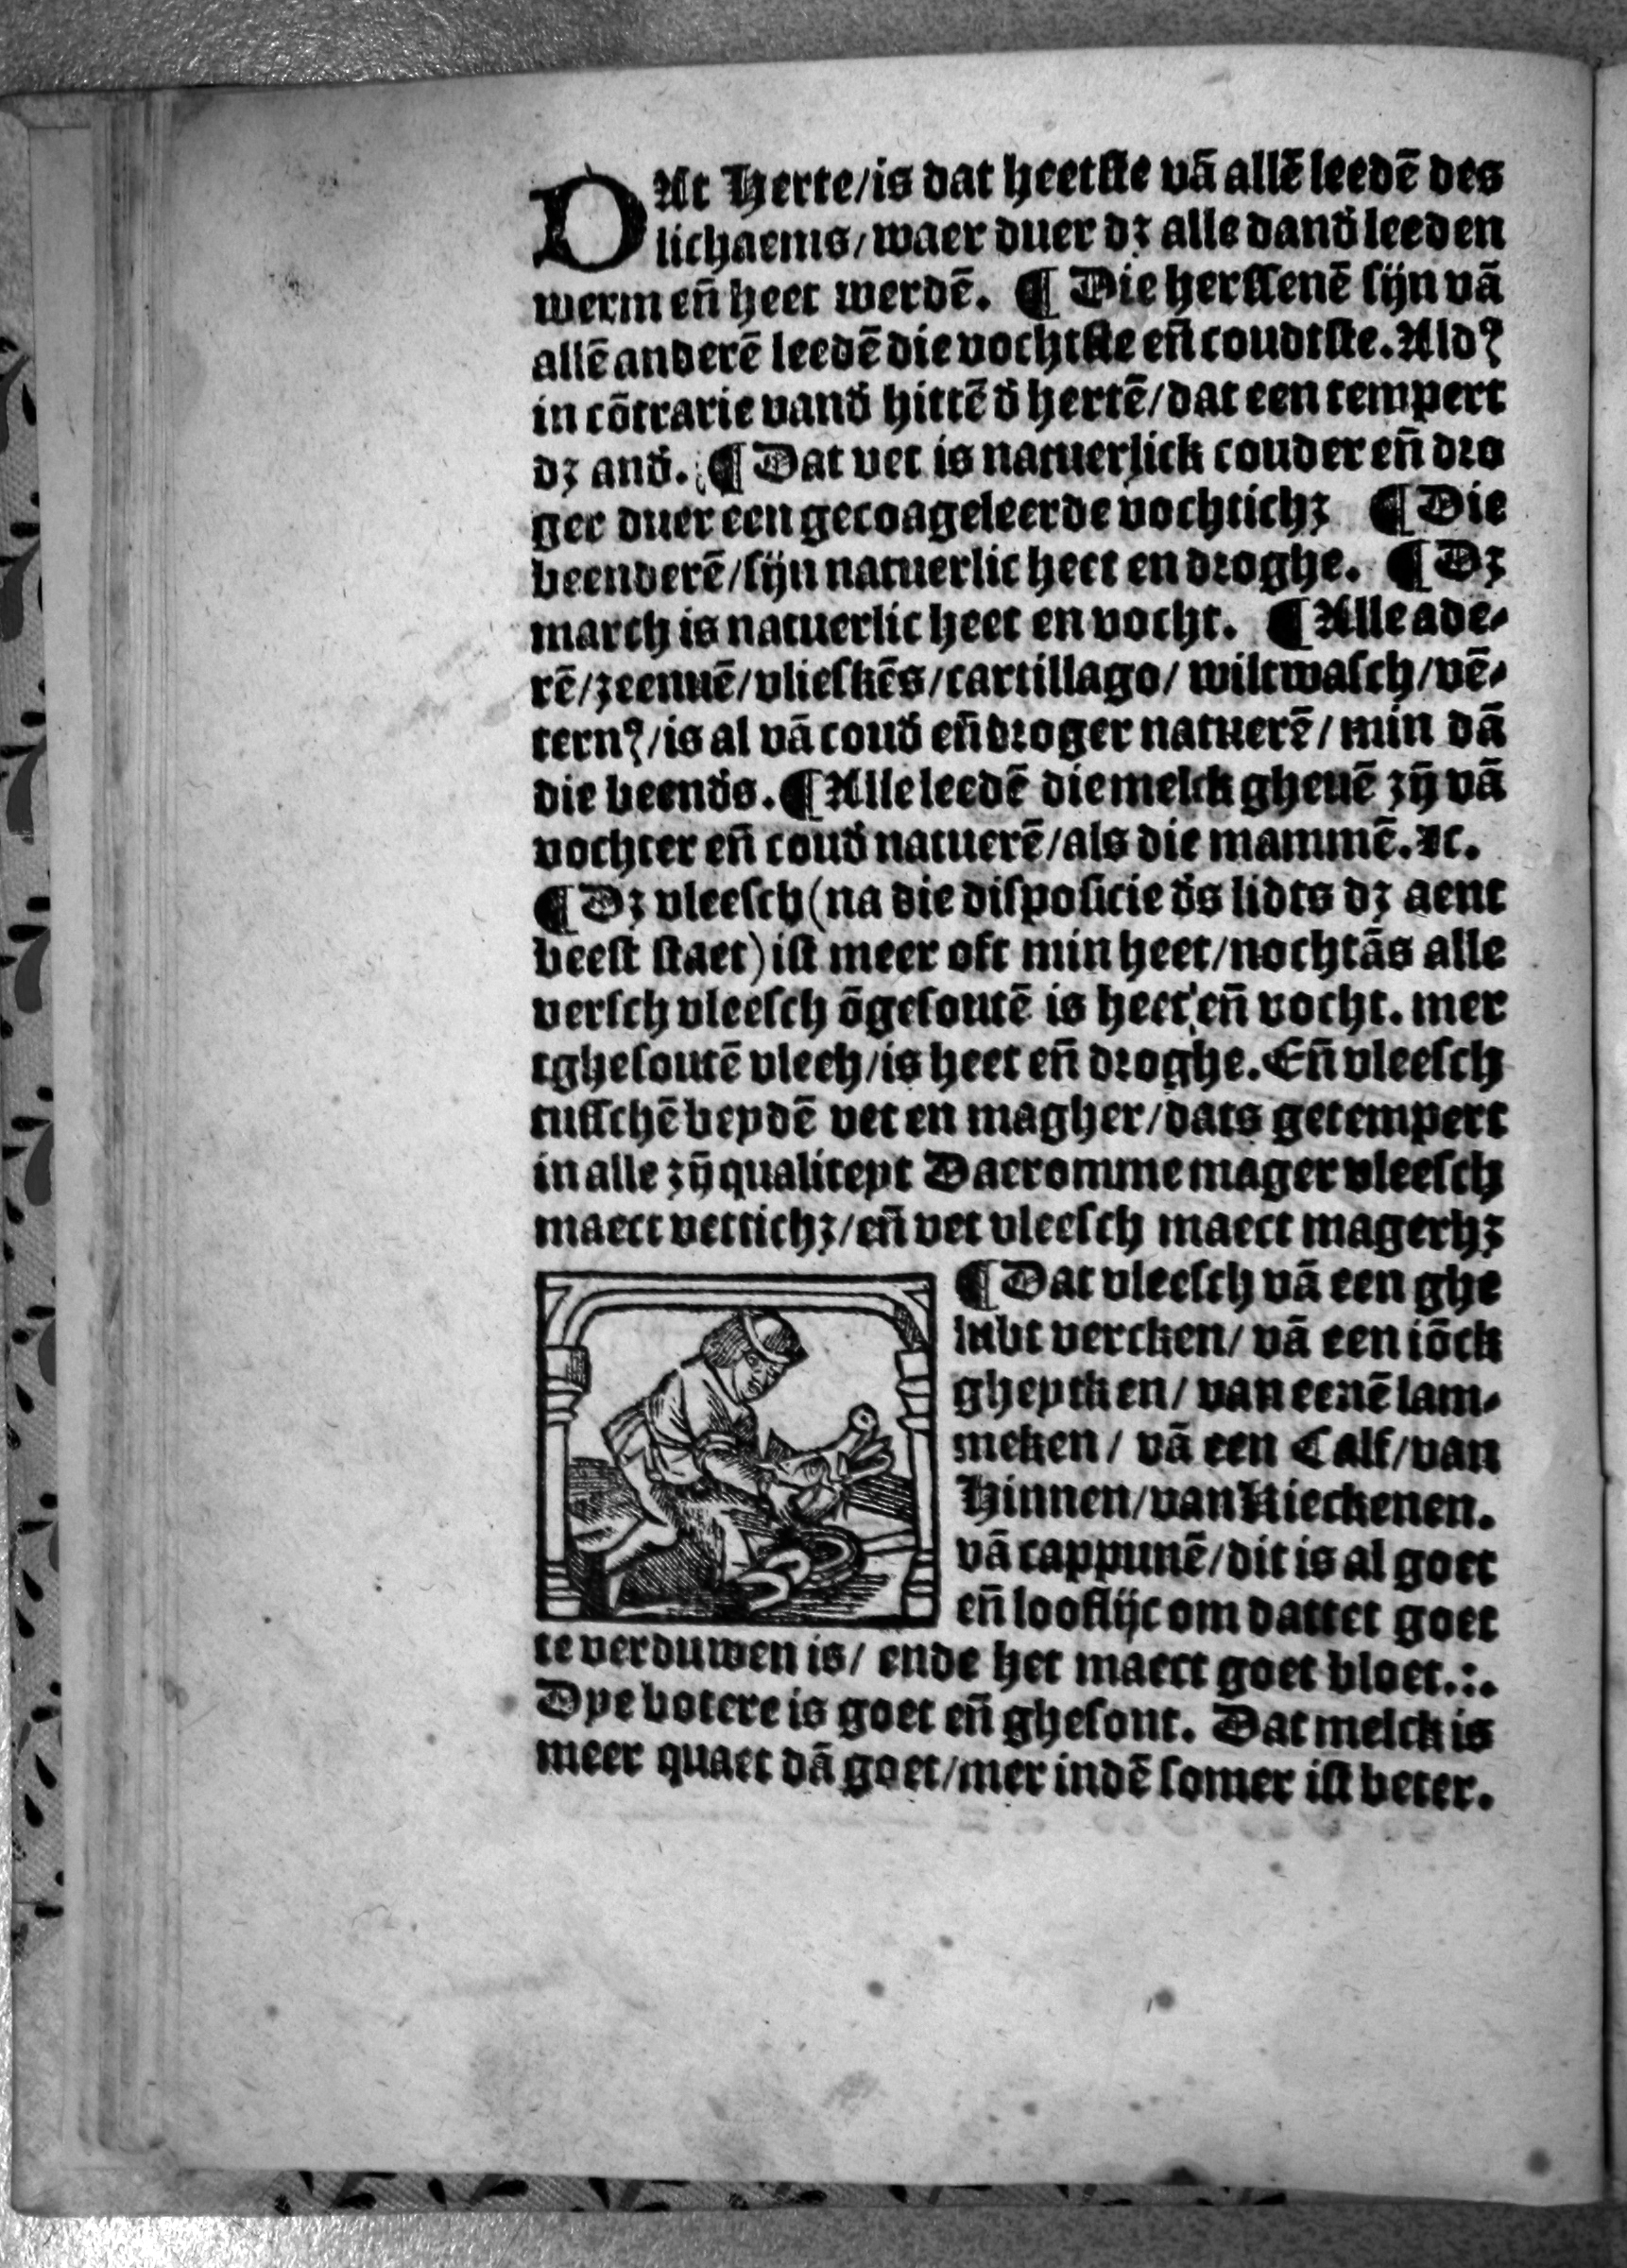 DAt Herte/is dat heetste vā allē leedē des
lichaems/waer duer dꝫ alle dand̛ leeden
werm en̄ heet werdē. ¶ Die herssenē sijn vā
allē anderē leedē die vochtste en̄ coudtste. Aldꝰ
in cōtrarie vand̛ hittē d̛ hertē/dat een tempert
dꝫ and̛. ¶ Dat vet is natuerlick couder en̄ dro
ger duer een gecoageleerde vochtichꝫ ¶ Die
beenderē/sijn natuerlic heet en droghe. ¶ Dꝫ
march is natuerlic heet en vocht. ¶ Alle ade⸗
rē/zeenuē/vlieskēs/cartillago/wiltwasch/vē⸗
ternꝰ/is al vā coud̛ en̄ droger natuerē/min dā
die beend̛s. ¶ Alle leedē die melck gheuē zȳ vā
vochter en̄ coud̛ natuerē/als die mammē. ⁊c.
¶ Dꝫ vleesch (na die disposicie d̛s lidts dꝫ aent
beest staet) ist meer oft min heet/nochtās alle
versch vleesch ōgesoutē is heet en̄ vocht. mer
tghesoutē vleeh/is heet en̄ droghe. En̄ vleesch
tusschē beydē vet en magher/dats getempert
in alle zȳ qualiteyt Daeromme mager vleesch
maect vettichꝫ/en̄ vet vleesch maect magerhꝫ
¶ Dat vleesch vā een ghe
lubt vercken/ vā een iōck
gheytken/ van eenē lam⸗
meken/ vā een Calf/van
Hinnen/van Kieckenen.
vā cappunē/dit is al goet
en̄ looflijc om dattet goet
te verduwen is/ ende het maect goet bloet.:.
Dye botere is goet en̄ ghesont. Dat melck is
meer quaet dā goet/mer indē somer ist beter.